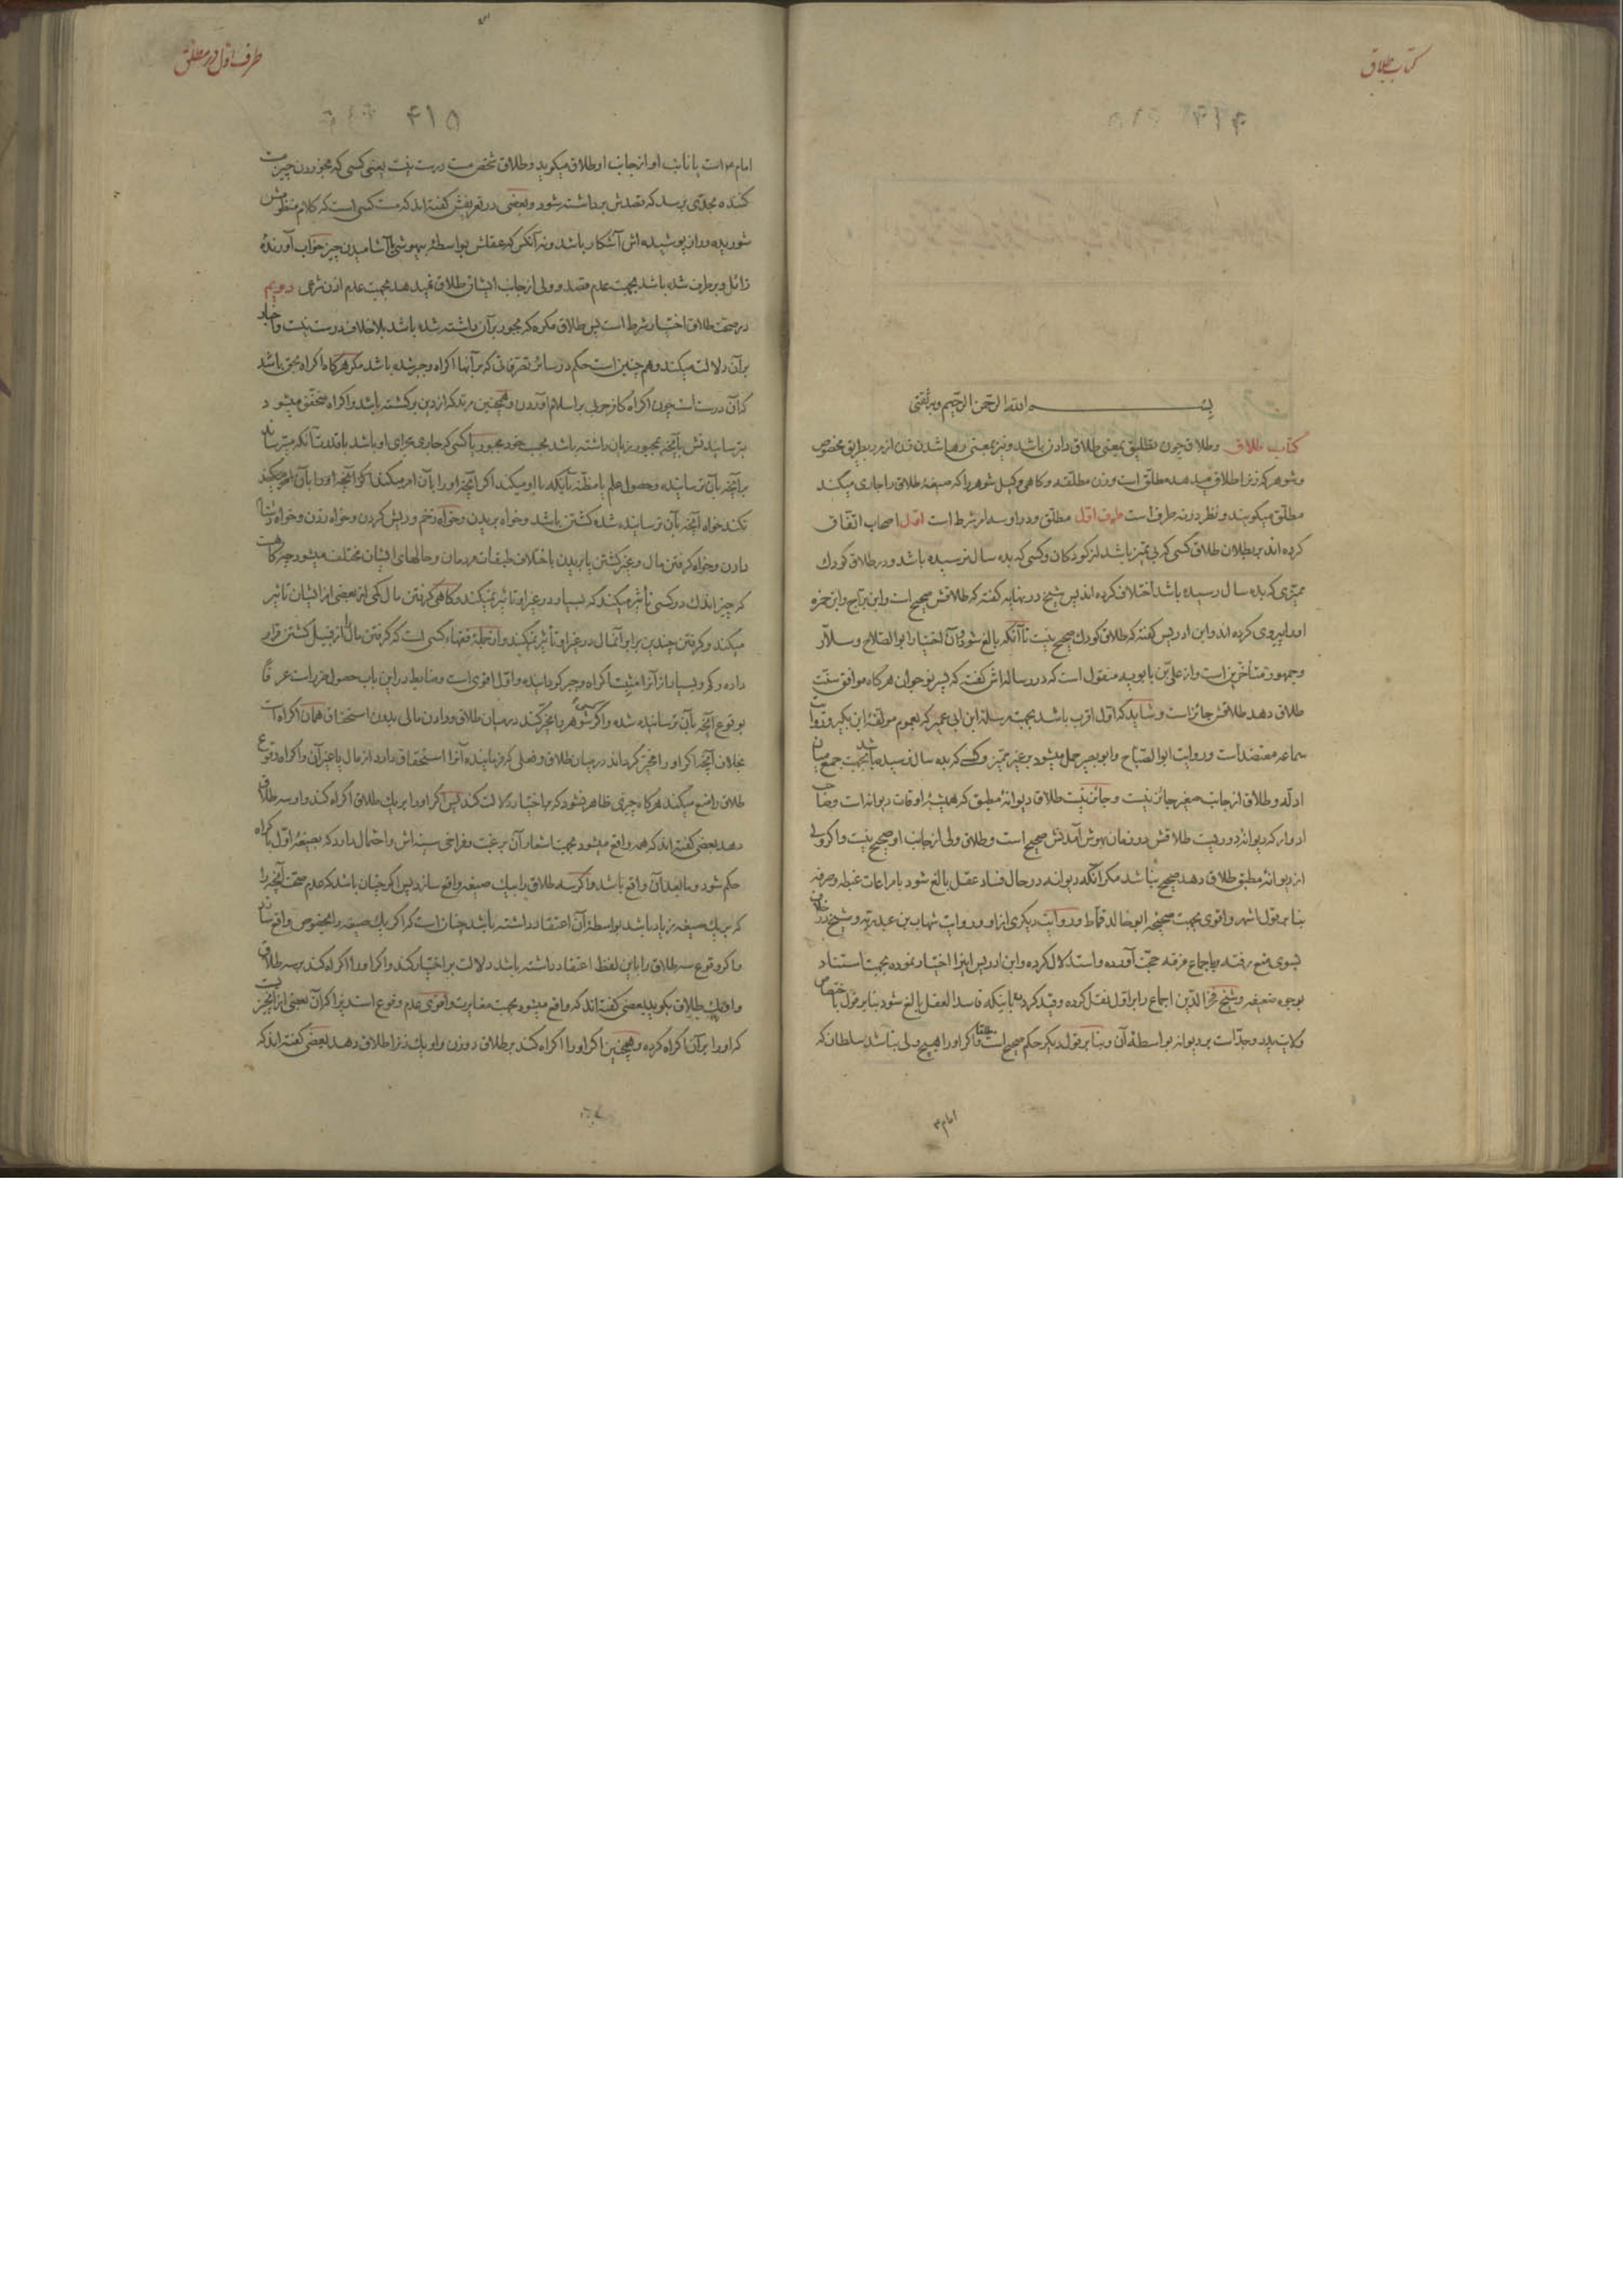 کتاب طلاق
بسم الله الرحمن الرحیم وبه ثقتی
کتاب طلاق وطلاق چون تطلیق بمعنی طلاق دادن باشد ونیز بمعنی رها شدن زن از مرد بطریق مخصوص
وشوهر که زنرا طلاق میدهد مطلق است وزن مطلقه وکاهی وکیل شوهر را که صیغهٔ طلاق را جاری میکند
مطلق میکویند ونظر در نه طرف است طرف اول مطلق ودر او سه امر شرط است اول اصحاب اتفاق
کرده اند بر بطلان طلاق کسی که بی تمیز باشد از کودکان وکسی که بده سال نرسیده باشد ودر طلاق کودک
ممیزی که بده سال رسیده باشد اختلاف کرده اند پس شیخ در نهایه کفته که طلاقش صحیح است وابن براج وابن حمزه
او را پیروی کرده اند وابن ادریس کفته که طلاق کودک صحیح نیست تا آنکه بالغ شود وآن اختیار ابو الصلاح وسلار
وجمهور متأخرین است واز علی بن بابویه منقول است که در رساله اش کفته که پسر نوجوان هرکاه موافق سنت
طلاق دهد طلاقش جائز است وشاید که اول اقرب باشد بجهت مرسلهٔ ابن ابی عمیر که بعموم موثقهٔ ابن بکیر وروایت
سماعه معتضد است وروایت ابو الصباح وابو بصیر حمل میشود بر غیر ممیز وکسی که بده سال نرسیده باشد بجهت جمع میان
ادله وطلاق از جانب صغیر جائز نیست وجائز نیست طلاق دیوانهٔ مطبق که همیشهٔ اوقات دیوانه است وصاحب
ادوار که دیوانهٔ دوریست طلاقش در زمان بهوش آمدنش صحیح است وطلاق ولی از جانب او صحیح نیست واکر ولی
از دیوانهٔ مطبق طلاق دهد صحیح نباشد مکر آنکه دیوانه در حال فساد عقل بالغ شود با مراعات غبطه وصرفه
بنا بر قول اشهر واقوی بجهت صحیحهٔ ابو خالد قماط وروایت دیکری از او وروایت شهاب بن عبد ربه وشیخ در خلاف
بسوی منع رفته وباجماع فرقه حجت آورده واستدلال کرده وابن ادریس اینرا اختیار نموده بجهت استناد
بوجوه ضعیفه وشیخ فخر الدین اجماع را بر اول نقل کرده وقید کرده باینکه فاسد العقل بالغ شود بنا بر قول باختصاص
ولایت پدر وجد است بر دیوانه بواسطهٔ آن وبنا بر قول دیکر حکم صحیح است مطلقا واکر او را هیچ ولی نباشد سلطان که
امام
طرف اول در مطلق
۴۱۵
امام است یا نایب او از جانب او طلاق میکوید وطلاق شخص مست درست نیست یعنی کسی که بخوردن چیز مست
کننده بحدی برسد که قصدش برداشته شود وبعضی در تعریفش کفته اند که مست کسی است که کلام منظومش
شوریده وراز پوشیده اش آشکار باشد ونه آنکس که عقلش بواسطهٔ بیهوشی یا آشامیدن چیز خواب آورنده
زائل وبرطرف شده باشد بجهت عدم قصد وولی از جانب ایشان طلاق نمیدهد بجهت عدم اذن شرعی دویم
در صحت طلاق اختیار شرط است پس طلاق مکره که مجبور بر آن داشته شده باشد بلا خلاف درست نیست واخبار
بر آن دلالت میکند وهم چنین است حکم در سائر تصرفاتی که بر آنها اکراه وجبر شده باشد مکر هرکاه اکراه بحق باشد
که آن درست است چون اکراه کافر حربی بر اسلام آوردن وهمچنین مرتد که از دین برکشته باشد واکراه متحقق میشود
بترسانیدنش بآنچه مجبور بر آن داشته باشد بحسب خود مجبور یا کسی که جاری مجرای او باشد با قدرت آنکه میترساند
بر آنچه بآن ترسانیده وحصول علم یا مظنه بآنکه با او میکند اکر آنچه او را بآن امر میکند
نکند خواه آنچه بآن ترسانیده شده کشتن باشد وخواه بریدن وخواه زخم وریش کردن وخواه زدن وخواه دشنام
دادن وخواه کرفتن مال وغیر کشتن یا بریدن باختلاف طبقات مردمان وحالهای ایشان مختلف میشود چه کاهست
که چیز اندک در کسی تأثیر میکند که بسیار در غیر او تأثیر نمیکند وکاهی کرفتن مال کمی از بعضی از ایشان تاثیر
میکند وکرفتن چندین برابر آنمال در غیر او تأثیر نمیکند واز جملهٔ فقهاء کسی است که کرفتن مال را از قبیل کشتن قرار
داده وکم وبسیار از آنرا مثبت اکراه وجبر کردانیده واول اقوی است وضابطه در این باب حصول ضرر است عرفا
بوقوع آنچه بآن ترسانیده شده واکر شوهر را مخیر کنند در میان طلاق ودادن مالی بدون استحقاق همان اکراه است
بخلاف آنچه اکر او را مخیر کرده اند در میان طلاق وفعلی که فرماینده آنرا استحقاق دارد از مال یا غیر آن واکراه وقوع
طلاق را منع میکند هرکاه چیزی ظاهر نشود که باختیار دلالت کند پس اکر او را بر یک طلاق اکراه کند واو سه طلاق
دهد بعضی کفته اند که همه واقع میشود بجهت اشعار آن بر غبت وفراخی سینه اش واحتمال دارد که بصیغهٔ اول باکراه
حکم شود وما بعد آن واقع باشد واکر سه طلاق را بیک صیغه واقع سازد پس اکر چنان باشد که عدم صحت آنچه را
که بر یک صیغه زیاد باشد بواسطهٔ آن اعتقاد داشته باشد چنان است که اکر یک صیغه را بخصوص واقع سازد
واکر وقوع سه طلاق را باین لفظ اعتقاد داشته باشد دلالت بر اختیار کند واکر او را اکراه کند بر سه طلاق
واو یک طلاق بکوید بعضی کفته اند که واقع میشود بجهت مغایرت واقوی عدم وقوع است زیرا که آن بعضی از آنچیز
که او را بر آن اکراه کرده وهمچنین اکر او را اکراه کند بر طلاق دو زن واو یک زنرا طلاق دهد بعضی کفته اند که